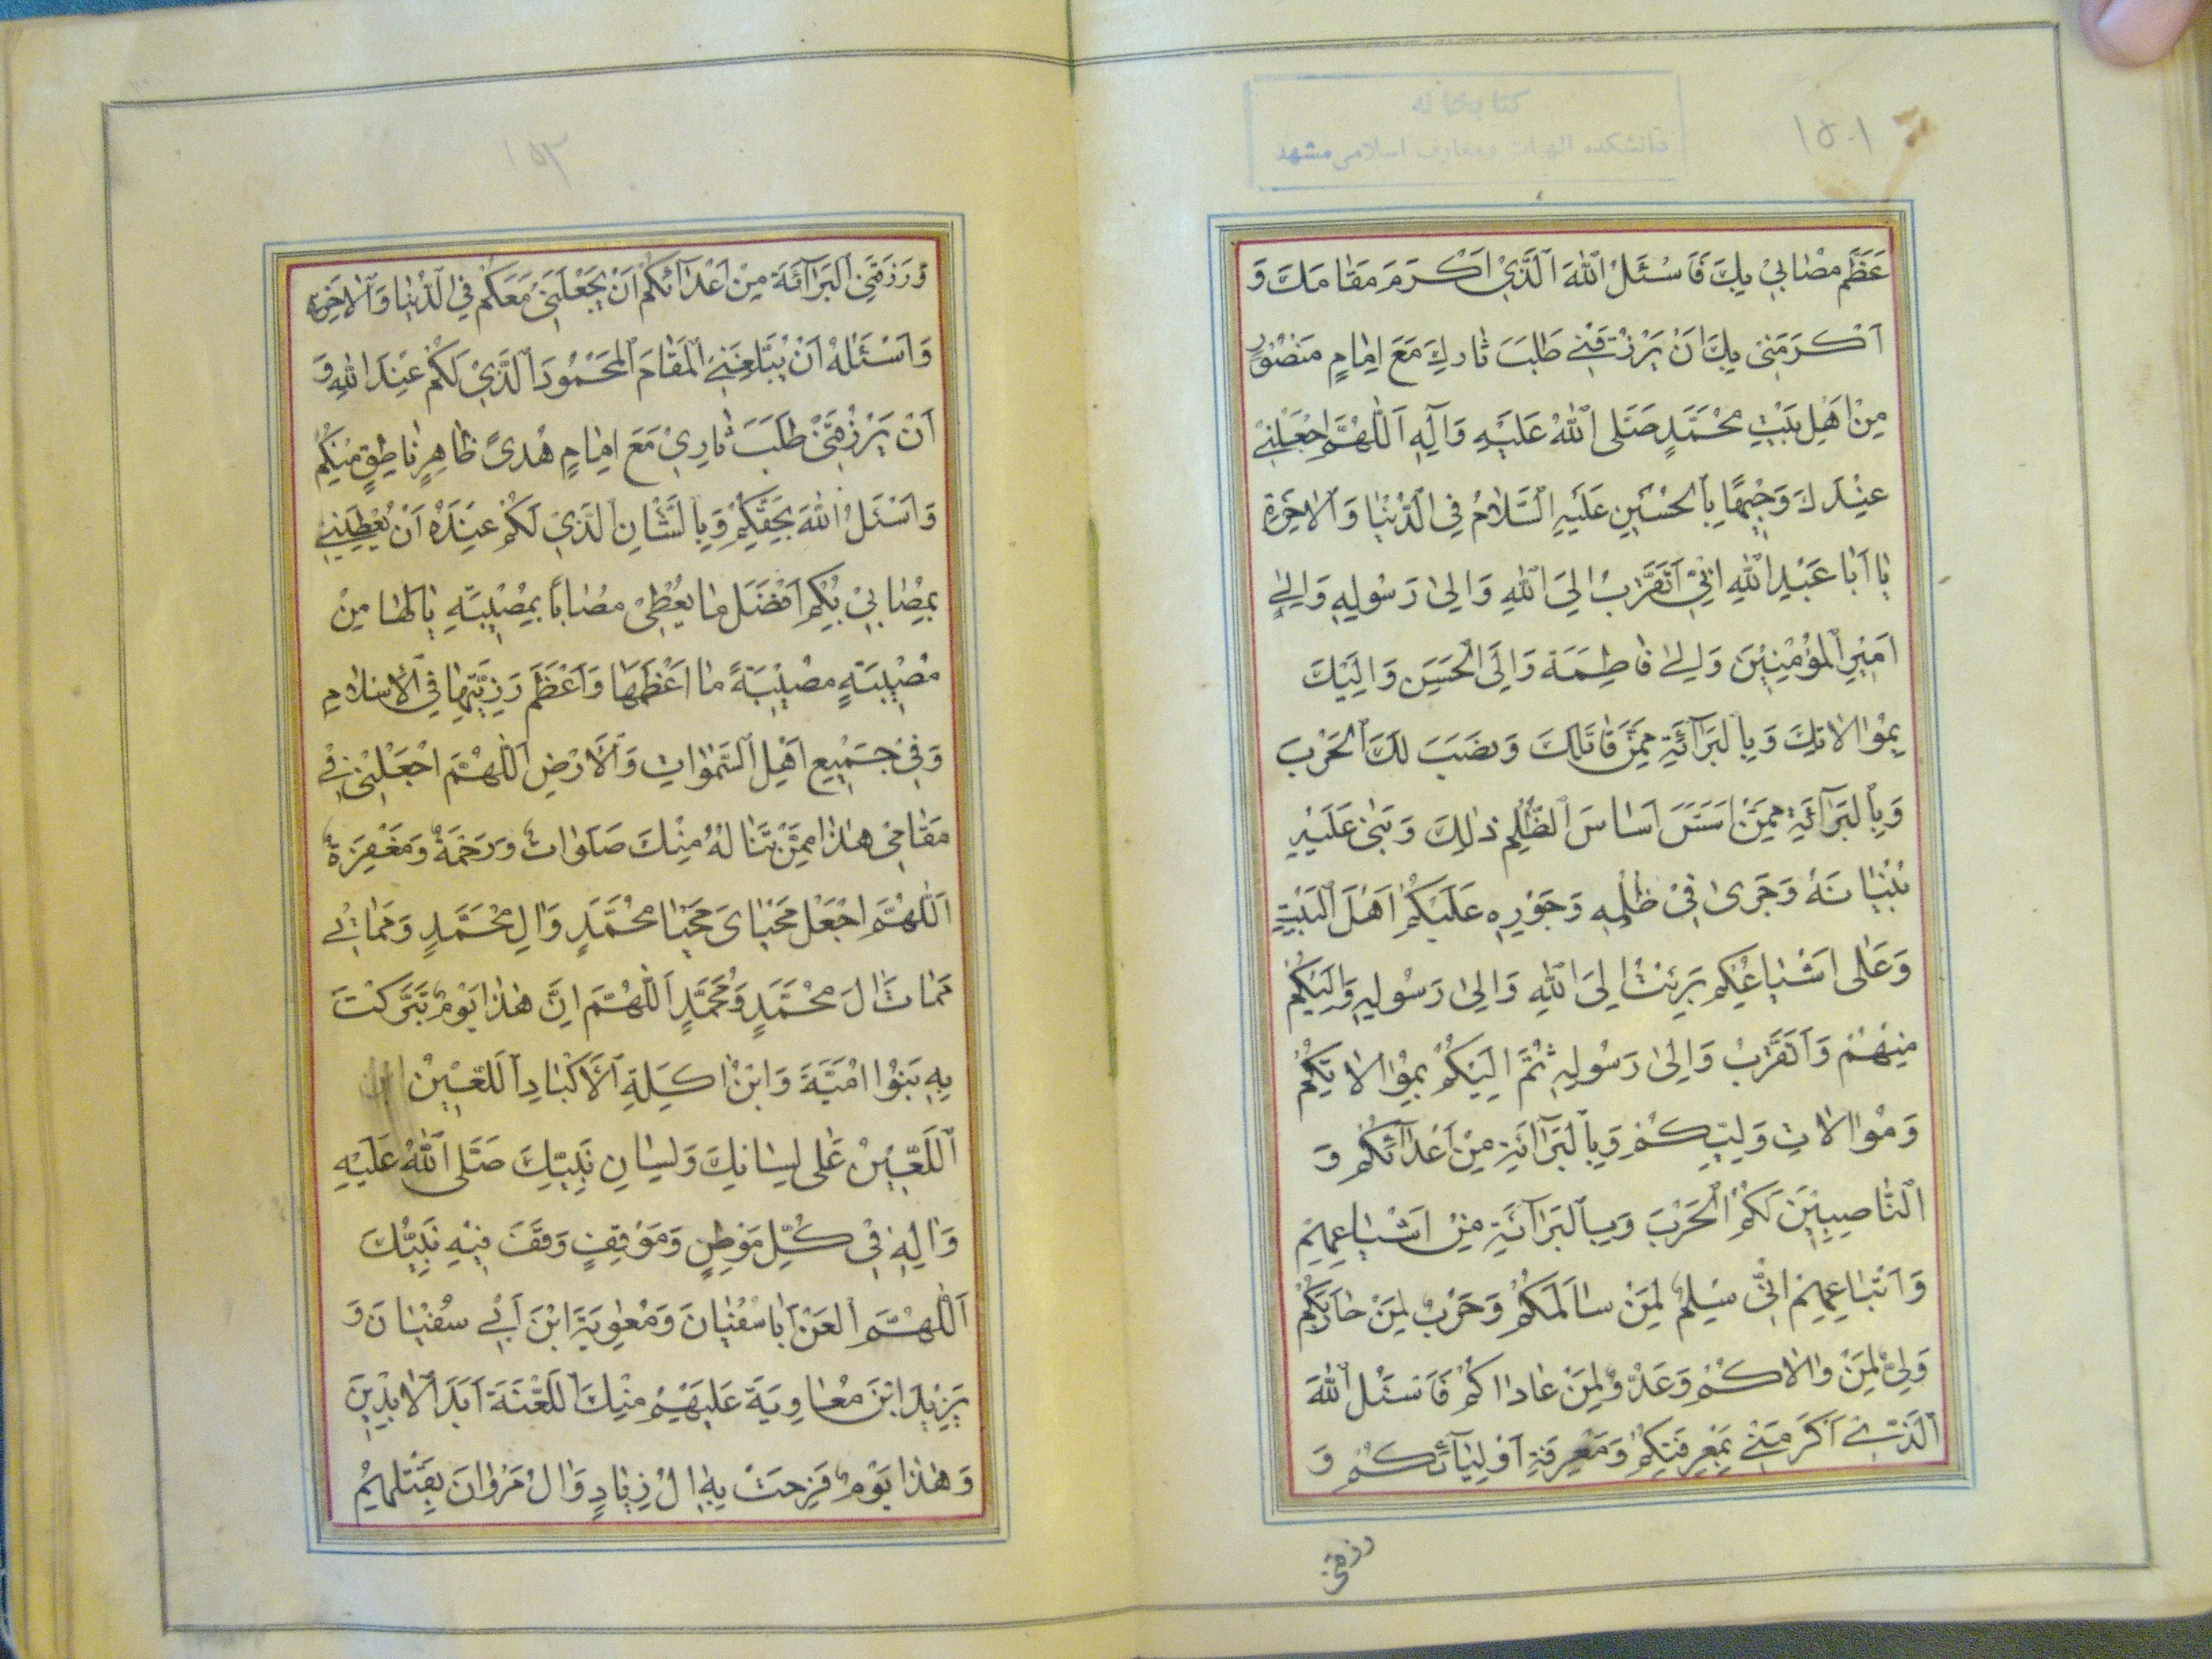 كتابخانه
دانشكده الهيات ومعارف اسلامى مشهد
عَظُمَ مُصابي بِكَ فَاَسْئَلُ اللهَ الَّذي اَكْرَمَ مَقامَكَ وَ
اَكْرَمَني بِكَ اَنْ يَرْزُقَني طَلَبَ ثارِكَ مَعَ اِمامٍ مَنْصُورٍ
مِنْ اَهْلِ بَيْتِ مُحَمَّدٍ صَلَّى اللهُ عَلَيْهِ وَآلِهِ اَللّهُمَّ اجْعَلْني
عِنْدَكَ وَجيهًا بِالْحُسَيْنِ عَلَيْهِ السَّلامُ فِي الدُّنْيا وَالْاخِرَةِ
يا اَبا عَبْدِ اللهِ اِنّي اَتَقَرَّبُ اِلَى اللهِ وَاِلى رَسُولِهِ وَاِلى
اَميرِ الْمُؤْمِنينَ وَاِلى فاطِمَةَ وَاِلَى الْحَسَنِ وَاِلَيْكَ
بِمُوالاتِكَ وَبِالْبَرآئَةِ مِمَّنْ قاتَلَكَ وَنَصَبَ لَكَ الْحَرْبَ
وَبِالْبَرآئَةِ مِمَّنْ اَسَّسَ اَساسَ الظُّلْمِ ذلِكَ وَبَنى عَلَيْهِ
بُنْيانَهُ وَجَرى في ظُلْمِهِ وَجَوْرِهِ عَلَيْكُمْ اَهْلَ الْبَيْتِ
وَعَلى اَشْياعِكُمْ بَرِئْتُ اِلَى اللهِ وَاِلى رَسُولِهِ وَاِلَيْكُمْ
مِنْهُمْ وَاَتَقَرَّبُ وَاِلى رَسُولِهِ ثُمَّ اِلَيْكُمْ بِمُوالاتِكُمْ
وَمُوالاتِ وَلِيِّكُمْ وَبِالْبَرآئَةِ مِنْ اَعْدآئِكُمْ وَ
النّاصِبينَ لَكُمُ الْحَرْبَ وَبِالْبَرآئَةِ مِنْ اَشْياعِهِمْ
وَاَتْباعِهِمْ اِنّي سِلْمٌ لِمَنْ سالَمَكُمْ وَحَرْبٌ لِمَنْ حارَبَكُمْ
وَلِيٌّ لِمَنْ والاكُمْ وَعَدُوٌّ لِمَنْ عاداكُمْ فَاَسْئَلُ اللهَ
الَّذي اَكْرَمَني بِمَعْرِفَتِكُمْ وَمَعْرِفَةِ اَوْلِيآئِكُمْ وَ
رزقنى
١٥٢
وَرَزَقَنِي الْبَرآئَةَ مِنْ اَعْدآئِكُمْ اَنْ يَجْعَلَني مَعَكُمْ فِي الدُّنْيا وَالْاخِرَةِ
وَاَسْئَلُهُ اَنْ يُبَلِّغَنِي الْمَقامَ الْمَحْمُودَ الَّذي لَكُمْ عِنْدَ اللهِ وَ
اَنْ يَرْزُقَني طَلَبَ ثاري مَعَ اِمامٍ هُدىً ظاهِرٍ ناطِقٍ مِنْكُمْ
وَاَسْئَلُ اللهَ بِحَقِّكُمْ وَبِالشَّانِ الَّذي لَكُمْ عِنْدَهُ اَنْ يُعْطِيَني
بِمُصابي بِكُمْ اَفْضَلَ ما يُعْطى مُصابًا بِمُصيبَتِهِ يالَها مِنْ
مُصيبَةٍ مُصيبَةً ما اَعْظَمَها وَاَعْظَمَ رَزِيَّتَها فِي الْاِسْلامِ
وَفي جَميعِ اَهْلِ السَّمواتِ وَالْاَرْضِ اَللّهُمَّ اجْعَلْني في
مَقامي هذا مِمَّنْ تَنالُهُ مِنْكَ صَلَواتٌ وَرَحْمَةٌ وَمَغْفِرَةٌ
اَللّهُمَّ اجْعَلْ مَحْيايَ مَحْيا مُحَمَّدٍ وَالِ مُحَمَّدٍ وَمَماتي
مَماتَ الَ مُحَمَّدٍ وَمُحَمَّدٍ اَللّهُمَّ اِنَّ هذا يَوْمٌ تَبَرَّكَتْ
بِهِ بَنُوا اُمَيَّةَ وَابْنُ اكِلَةِ الْاَكْبادِ اللَّعينُ ابن
اللَّعينُ عَلى لِسانِكَ وَلِسانِ نَبِيِّكَ صَلَّى اللهُ عَلَيْهِ
وَالِهِ في كُلِّ مَوْطِنٍ وَمَوْقِفٍ وَقَفَ فيهِ نَبِيُّكَ
اَللّهُمَّ الْعَنْ اَبا سُفْيانَ وَمُعوِيَةَ ابْنَ اَبي سُفْيانَ وَ
يَزيدَ ابْنَ مُعاوِيَةَ عَلَيْهِمْ مِنْكَ اللَّعْنَةَ اَبَدَ الْابِدينَ
وَهذا يَوْمٌ فَرِحَتْ بِهِ الُ زِيادٍ وَالُ مَرْوانَ بِقَتْلِهِمُ